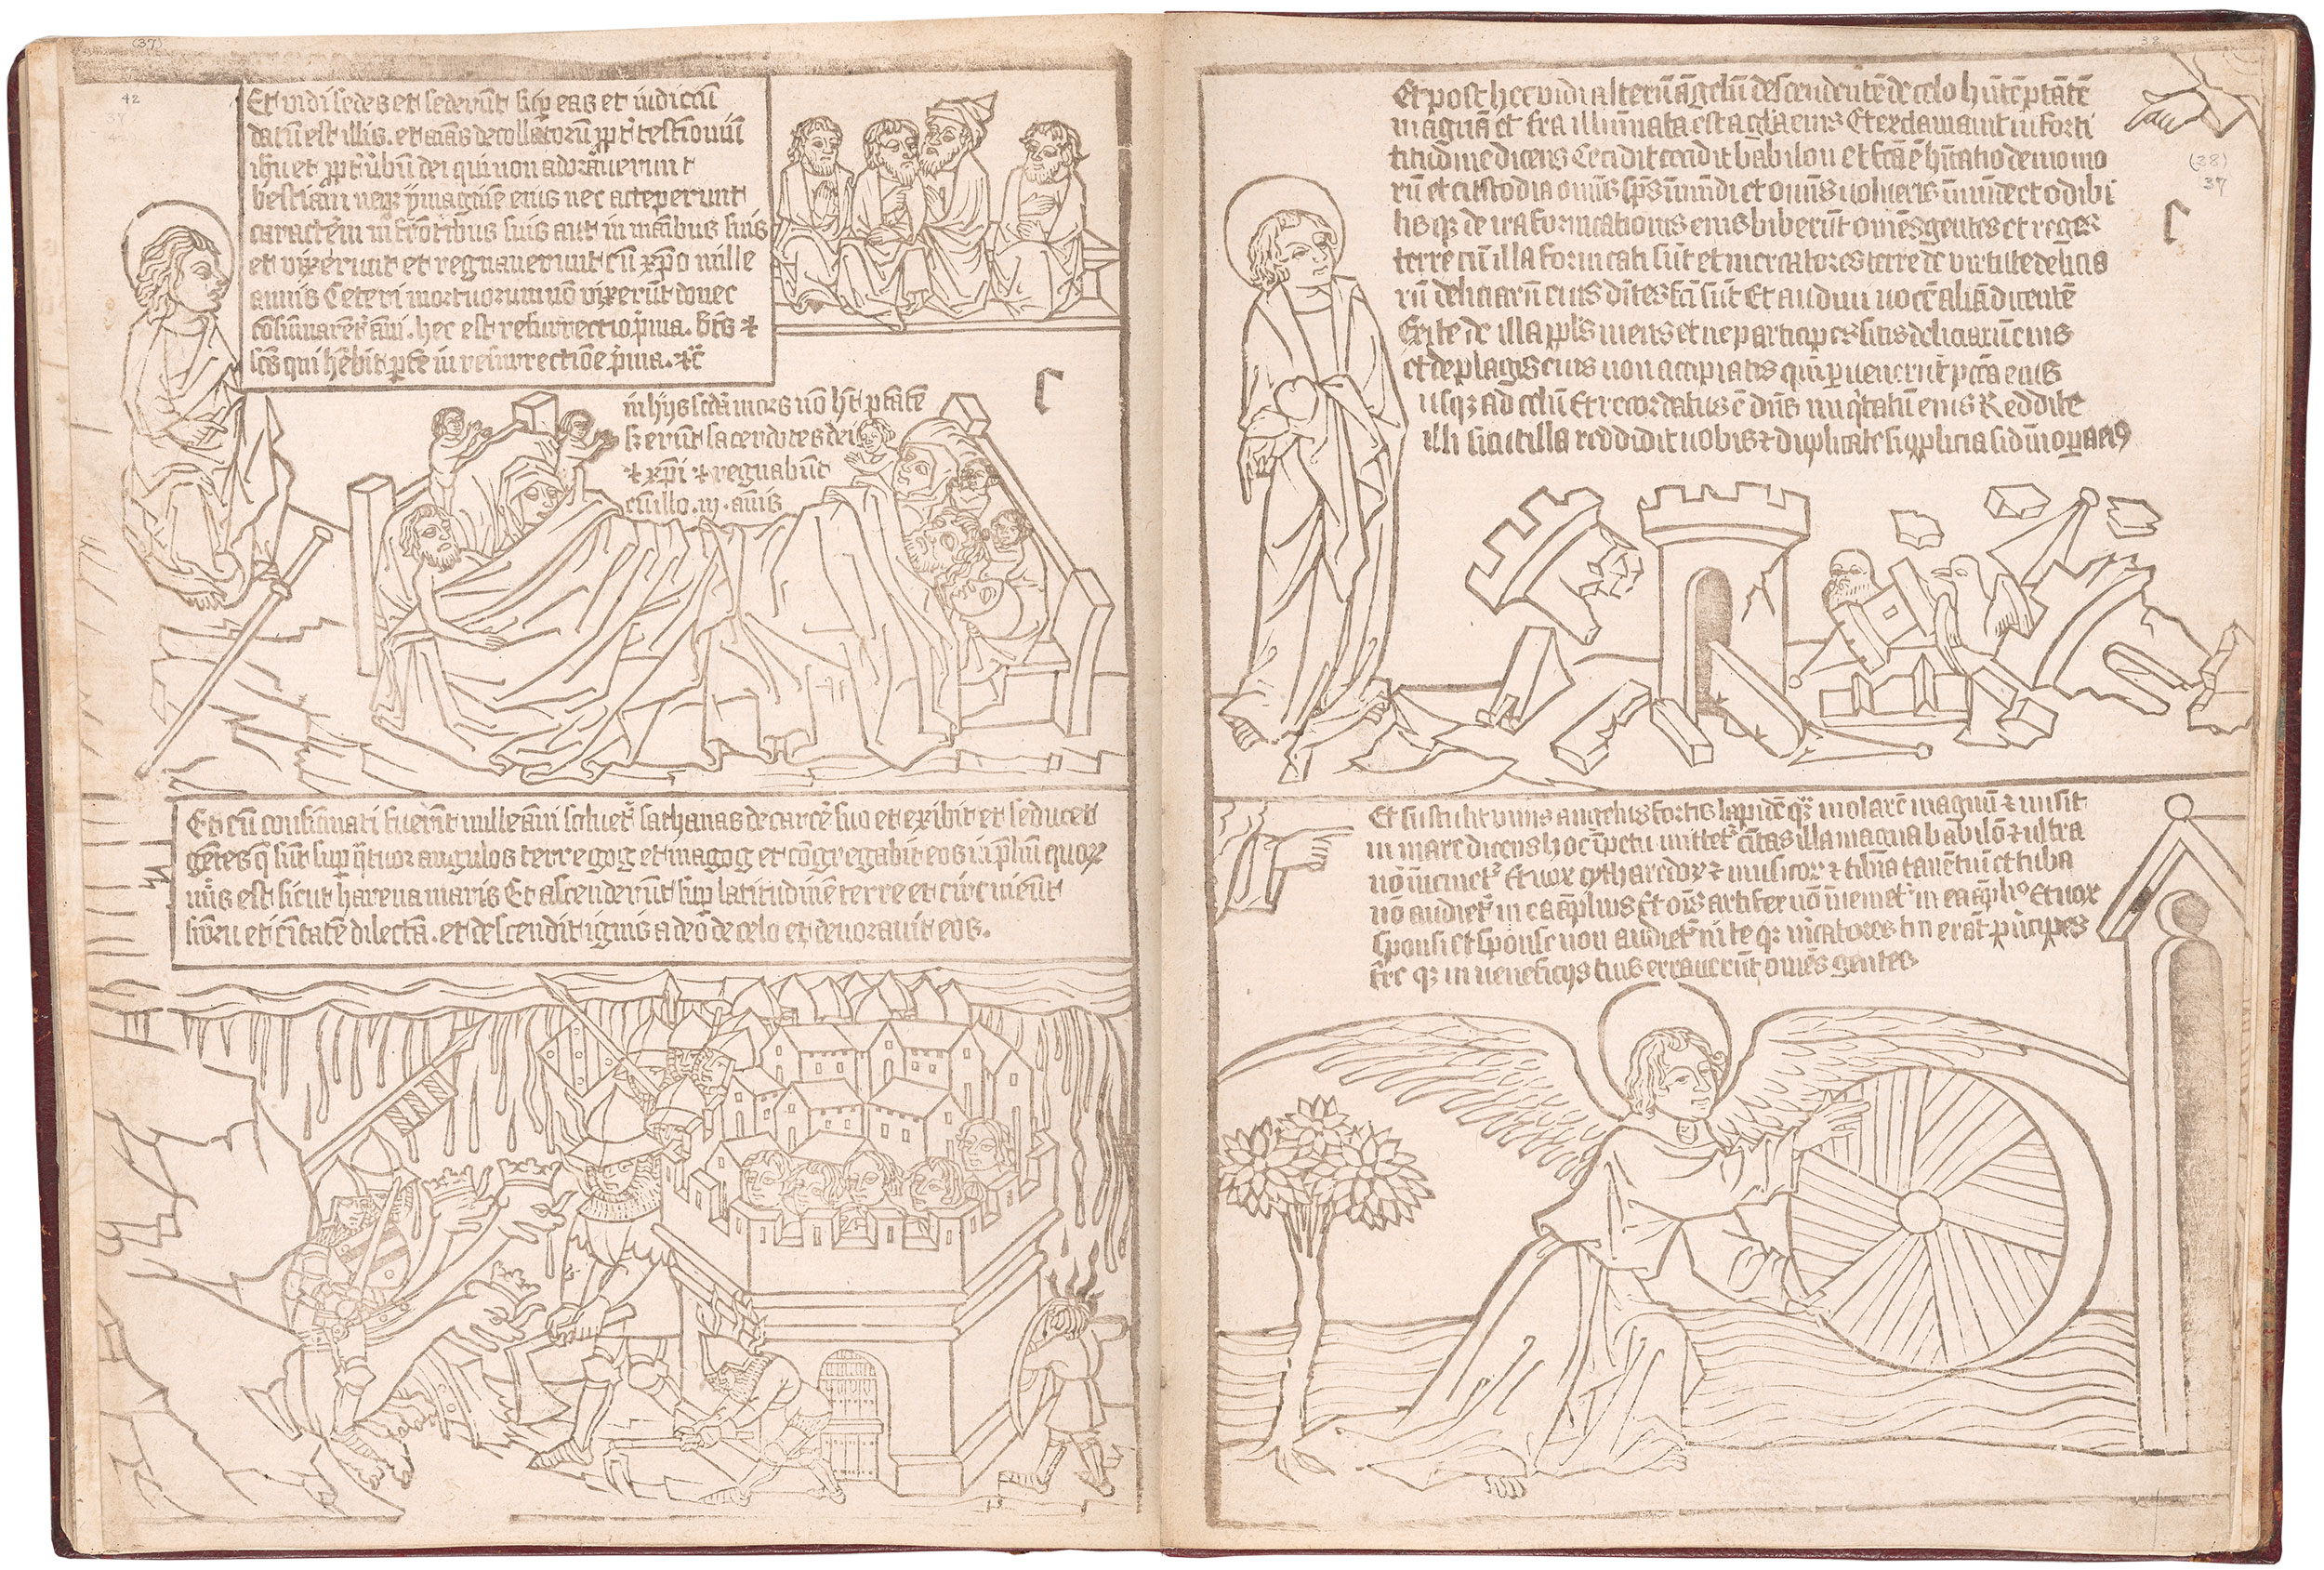 (37)
42
37
Et vidi sedes et sederūt sup eas et iudiciū
datū est illis. et aīas decollatorū ppt testimoniū
ihu et ppt ūbū dei qui non adorauerunt
bestiam neqꝫ ymaginē eius nec acceperunt
caracterē in frōtibus suis aut in manibus suis
et vixerunt et regnauerunt cū xpo mille
annis Ceteri mortuorum nō vixerūt donec
cōsūmarent āni. hec est resurrectio pīma. bt̄s ⁊
scūs qui hēbit pt̄ē in resurrectiōe pīma. ⁊c̄
in hijs scdā mors nō ht̄ ptatē
sꝫ erūt sacerdotes dei
⁊ xp̄i ⁊ regnabūt
cū illo . m . annis
C
Et cū consūmati fuerīt mille āni soluet᷑ sathanas de carcē suo et exibit et seducet
gētes q̄ sūt sup q̄tuor angulos terre gog et magog et cōgregabit eos ī p̄liū quoꝝ
nūs est sicut harena maris Et ascenderūt sup latitudinē terre et circuierūt
et ciūitatē dilectā. et descendit ignis a deo de celo et deuorauit eos.
38
Et post hec vidi alterū āgelū descendentē de celo hn̄tē ptātē
magnā et tr̄a illuminata est a gl̄a eius Et exclamauit in forti
titudine dicens Cecidit cecidit babilon et fc̄a ē hītatio demonio
rū et custodia omīs sp̄s inmūdi et omīs uolucris īmūde et odibi
lis qꝫ de ira fornicationis eius biberūt omēs gentes et reges
terre cū illa fornicati sūt et mercatores terre de virtute delicia
rū deliciarū eius diuites fc̄i sūt Et audiui uocē aliā dicentē
Exite de illa ppl̄s meus et ne participes sitis deliciarū eius
et de plagis eius non accipiatis qm̄ puenerūt pctā eius
usqꝫ ad celū Et recordatus ē dn̄s iniq̄tatū eius Reddite
illi sicut illa reddidit uobis ⁊ duplicate supplicia sīdm opa eiꝰ
(38)
37
C
Et sustulit unus angelus fortis lapidē qͣ molarē magnū ⁊ misit
in mare dicens hoc īpetu mittet᷑ ciuitas illa magna babilō ⁊ ultra
nō īuenietr Et uox cytharedoꝝ ⁊ musicoꝝ ⁊ tibia canentiū et tuba
nō audiet᷑ in ea āplius Et oīs artifex nō īueniet᷑ in ea āpliꝰ Et uox
sponsi et sponse non audiet᷑ in te qꝫ mcatores tui erāt pīncipes
tr̄e qꝫ in ueneficijs tuis errauerūt omēs gentes